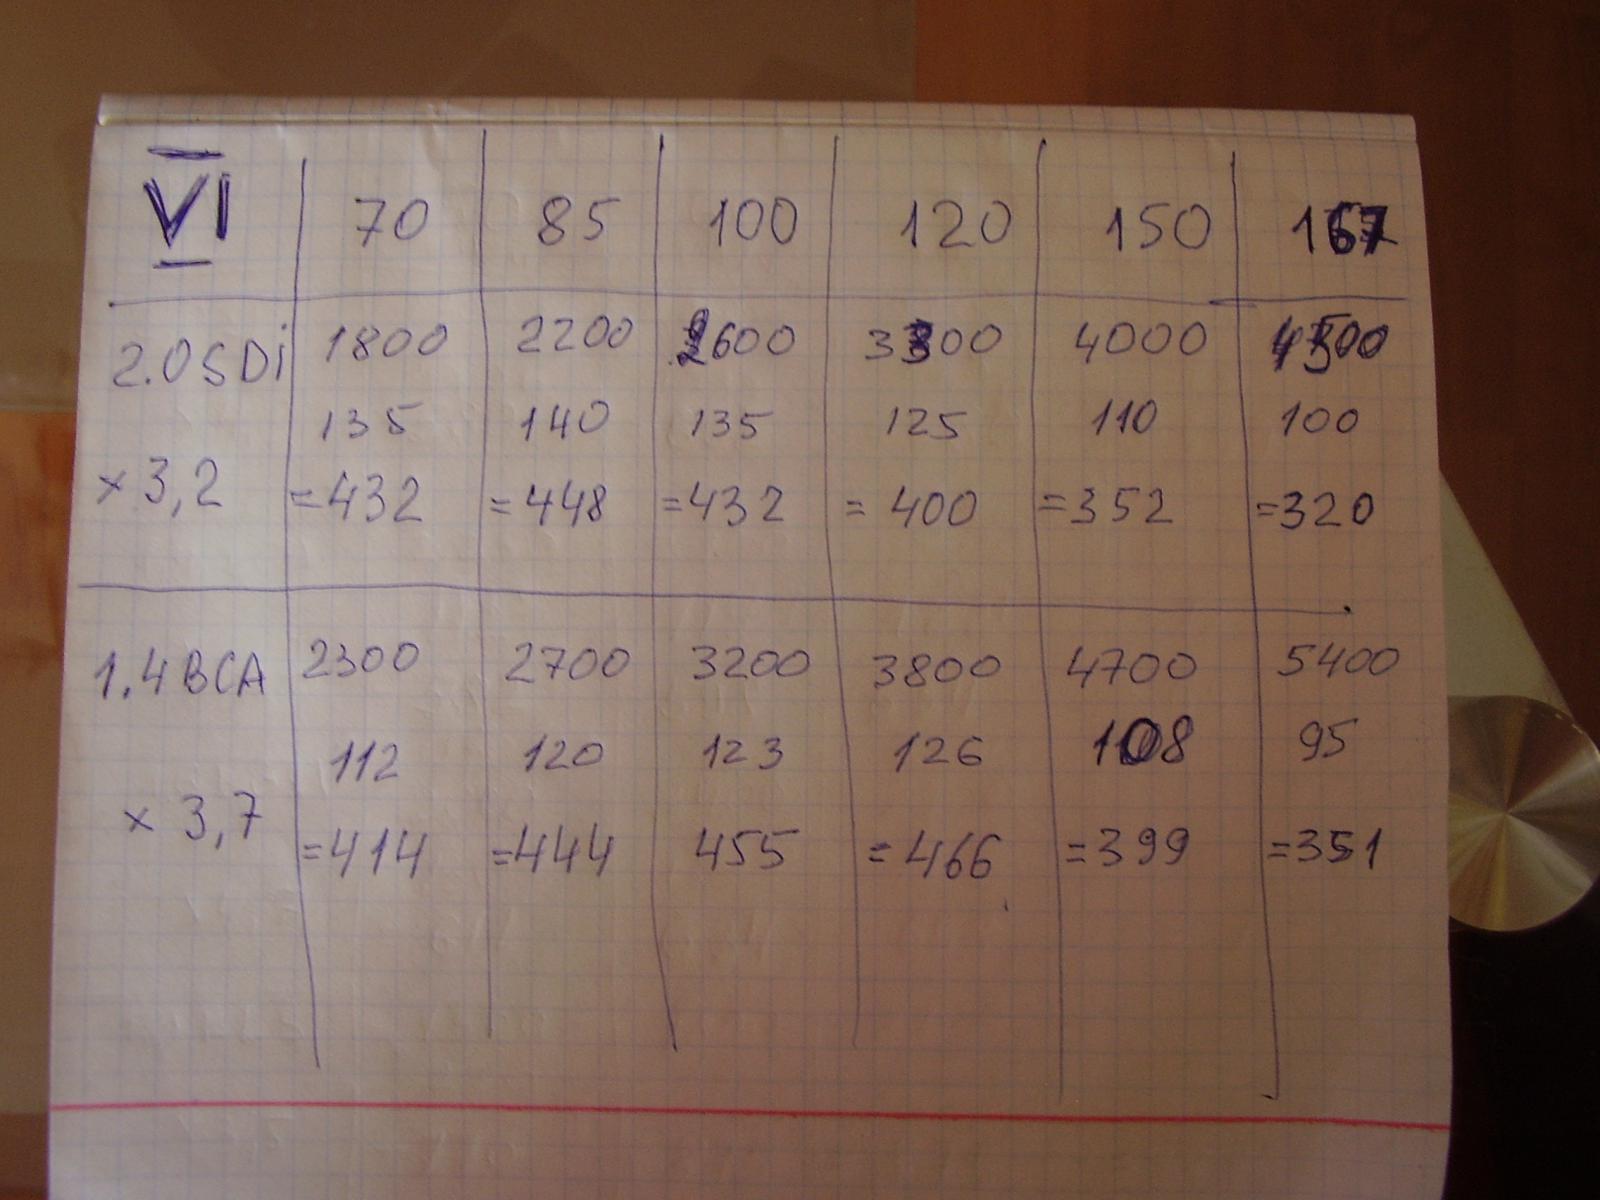 VI 70 85 100 120 150 167
2.0SDi 1800 2200 2600 3300 4000 4500
135 140 135 125 110 100
× 3,2 =432 =448 =432 =400 =352 =320
1.4BCA 2300 2700 3200 3800 4700 5400
112 120 123 126 108 95
× 3,7 =414 =444 455 =466 =399 =351